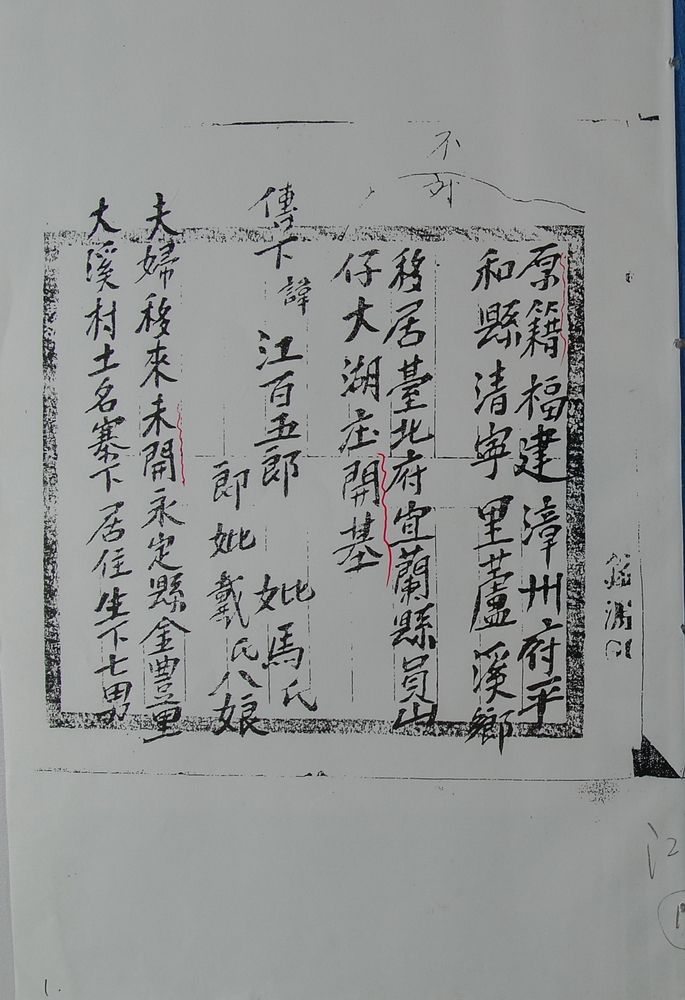 原籍福建漳州府平
和縣清寧里蘆溪鄉
移居臺北府宜蘭縣員山
仔大湖庄開基
傳下諱江百五郎 妣馬氏
即妣戴氏八娘
夫婦移來未開永定縣金豊里
大溪村土名寨下居住生下七男
不列
江
1
1.